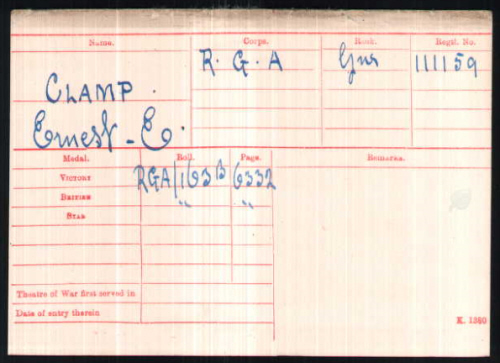 Name. Corps. Rank. Regtl. No.
R. G. A Gnr 111159
CLAMP.
Ernest-E.
Medal. Roll. Page. Remarks.
VICTORY RGA/163B 6332
BRITISH " "
STAR
Theatre of War first served in
Date of entry therein
K. 1380